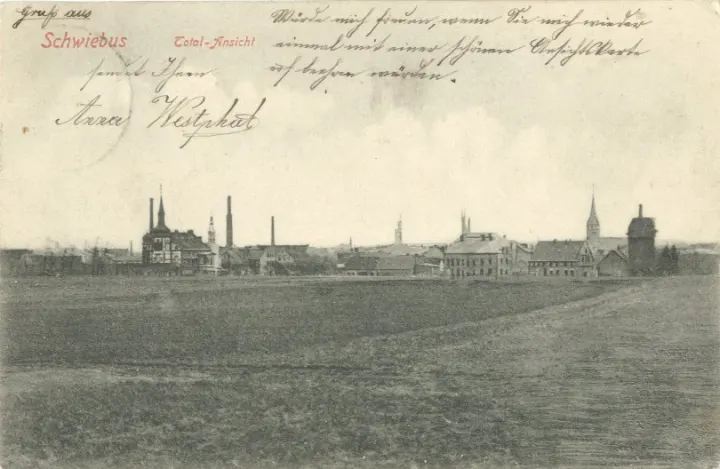 Gruß aus
Schwiebus Total-Ansicht
sendet Ihnen
Anna Westphal
Würde mich freuen, wenn Sie mich wieder
einmal mit einer schönen Ansichtskarte
beehren würden.